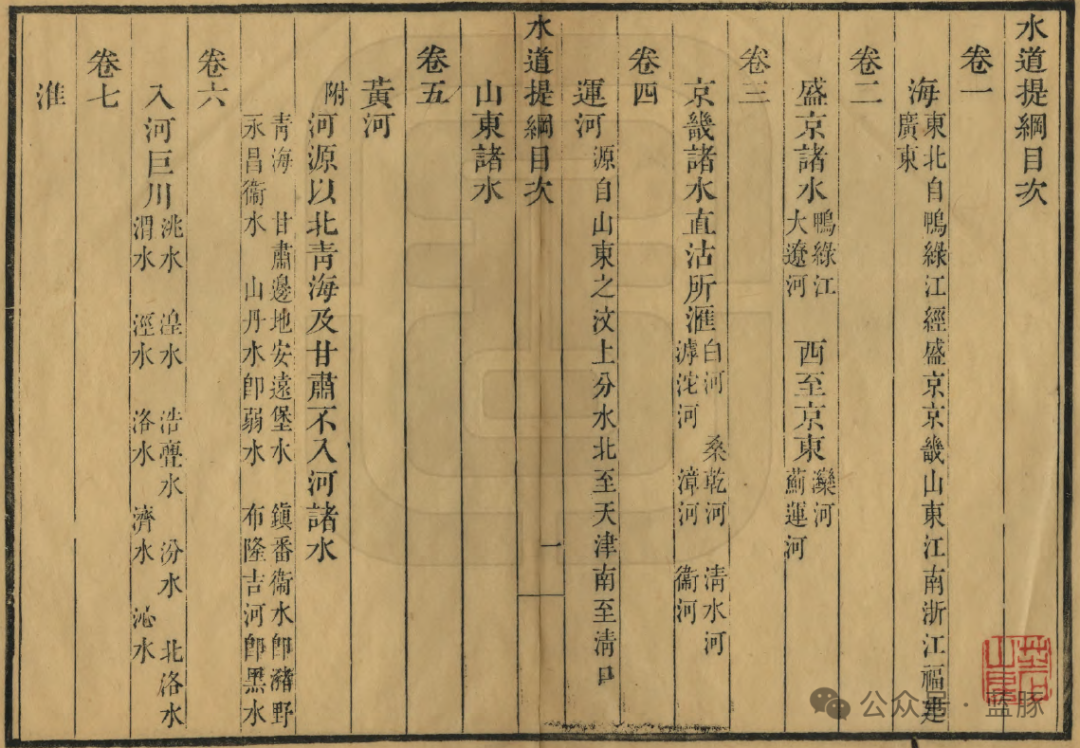 水道提綱目次
卷一
海東北自鴨綠江經盛京京畿山東江南浙江福建
廣東
卷二
盛京諸水鴨綠江 西至京東灤河
大遼河 薊運河
卷三
京畿諸水直沽所滙白河 桑乾河 清水河
滹沱河 漳河 衞河
卷四
運河源自山東之汶上分水北至天津南至清口
水道提綱目次
一
山東諸水
卷五
黃河
附河源以北青海及甘肅不入河諸水
青海 甘肅邊地安遠堡水 鎭番衞水卽瀦野
永昌衞水 山丹水卽弱水 布隆吉河卽黑水
卷六
入河巨川洮水 湟水 浩亹水 汾水 北洛水
渭水 涇水 洛水 濟水 沁水
卷七
淮
公众号·蓝豚